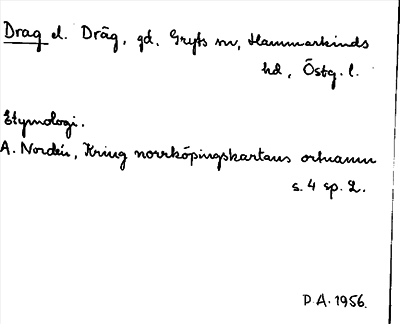 Drag el. Dräg, gd. Gryts sn, Hammarkinds
hd, Östg. l.
Etymologi.
A. Nordén, Kring norrköpingskartans ortnamn
s. 4 sp. 2.
D.A. 1956.